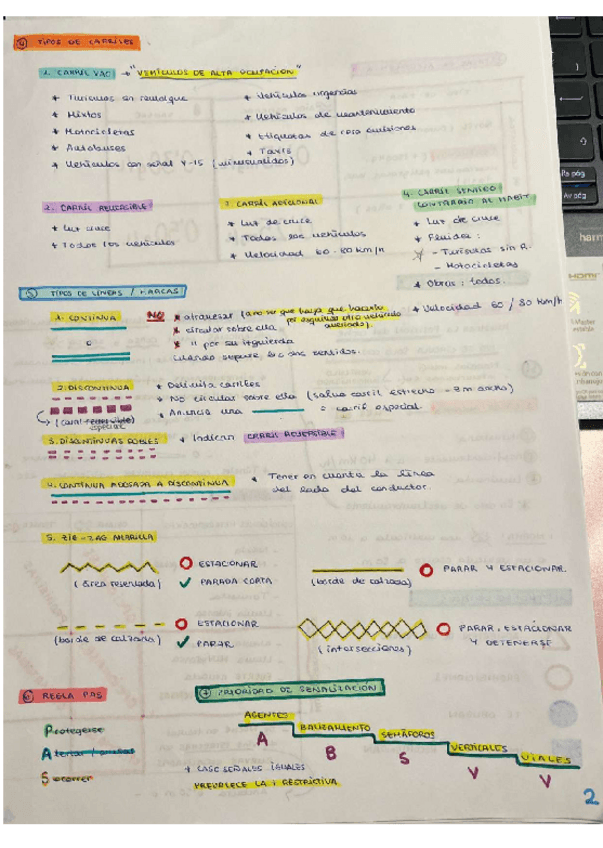 ④ TIPOS DE CARRILES
1. CARRIL VAO → "VEHÍCULOS DE ALTA OCUPACIÓN"
* Turismos sin remolque
* Mixtos
* Motocicletas
* Autobuses
* Vehículos con señal V-15 (minusválidos)
* Vehículos urgencias
* Vehículos de mantenimiento
* Etiquetas de cero emisiones
* Taxis
2. CARRIL REVERSIBLE
* Luz cruce
* Todos los vehículos
3. CARRIL ADICIONAL
* Luz de cruce
* Todos los vehículos
* Velocidad 60-80 km/h
4. CARRIL SENTIDO
CONTRARIO AL HABIT.
* Luz de cruce
* Fluidez:
- Turismos sin R.
- Motocicletas
* Obras: todos.
* Velocidad 60 / 80 km/h
⑤ TIPOS DE LÍNEAS / MARCAS
1. CONTINUA
NO * atravesar (a no ser que haya que hacerlo
por esquivar otro vehículo
averiado).
* circular sobre ella
* " por su izquierda
cuando separe los dos sentidos.
2. DISCONTINUA
* Delimita carriles
* No circular sobre ella (salvo carril estrecho - 3m ancho)
* Anuncia una = carril especial.
(carril reversible)
especial
3. DISCONTINUAS DOBLES
* Indican CARRIL REVERSIBLE
4. CONTINUA ADOSADA A DISCONTINUA
* Tener en cuenta la línea
del lado del conductor.
5. ZIG-ZAG AMARILLA
ESTACIONAR
(área reservada) ✓ PARADA CORTA
PARAR Y ESTACIONAR.
(borde de calzada)
ESTACIONAR
(borde de calzada) ✓ PARAR
PARAR, ESTACIONAR
Y DETENERSE
(intersecciones)
⑥ REGLA PAS
Protegerse
Socorrer
⑦ PRIORIDAD DE SEÑALIZACIÓN
AGENTES
BALIZAMIENTO
SEMÁFOROS
VERTICALES
VIALES
A
B
S
V
V
* CASO SEÑALES IGUALES
PREVALECE LA + RESTRICTIVA
2
Re pág
Av pág